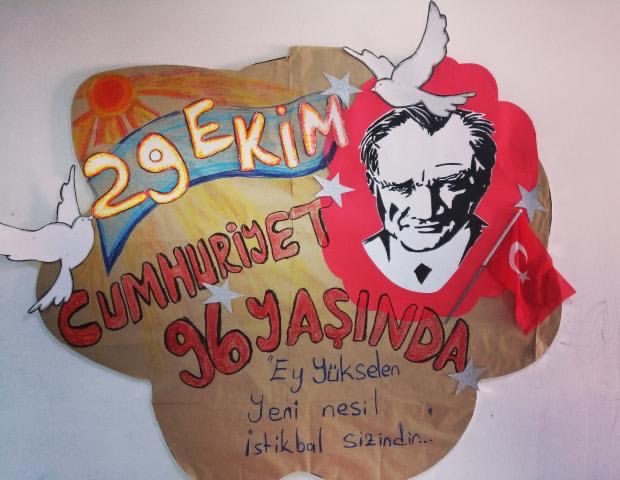 29 EKİM
CUMHURİYET
96 YAŞINDA
"Ey Yükselen
yeni nesil
istikbal sizindir...